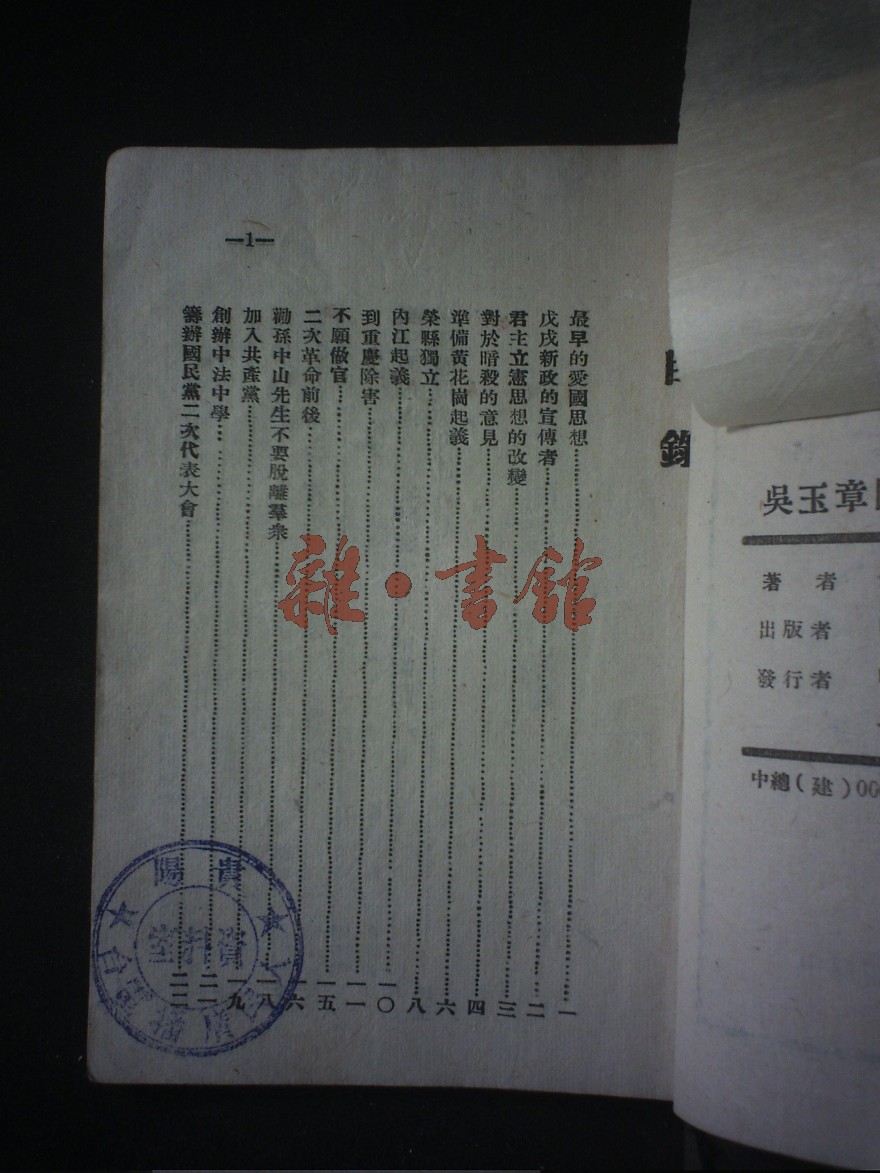 吳玉章
著者
出版者
發行者
中總(建)00
錄
最早的愛國思想……一
戊戌新政的宣傳者……二
君主立憲思想的改變……三
對於暗殺的意見……四
準備黃花崗起義……六
榮縣獨立……八
內江起義……一〇
到重慶除害……一一
不願做官……一五
二次革命前後……一六
勸孫中山先生不要脫離羣衆……一八
加入共產黨……一九
創辦中法中學……二一
籌辦國民黨二次代表大會……二二
—1—
雜·書館
貴陽
資料室